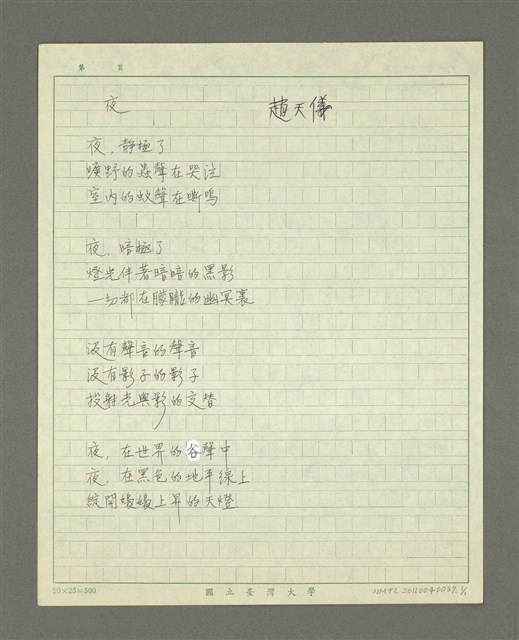 第 頁
夜 趙天儀
夜，靜極了
曠野的蟲聲在哭泣
室內的蚊聲在嘶鳴
夜，暗極了
燈光伴著暗暗的黑影
一切都在朦朧的幽冥裏
沒有聲音的聲音
沒有影子的影子
投射光與影的交替
夜，在世界的谷聲中
夜，在黑色的地平線上
綻開緩緩上昇的天燈
20×25=500 國立臺灣大學 NMTL 20110040087.1/1